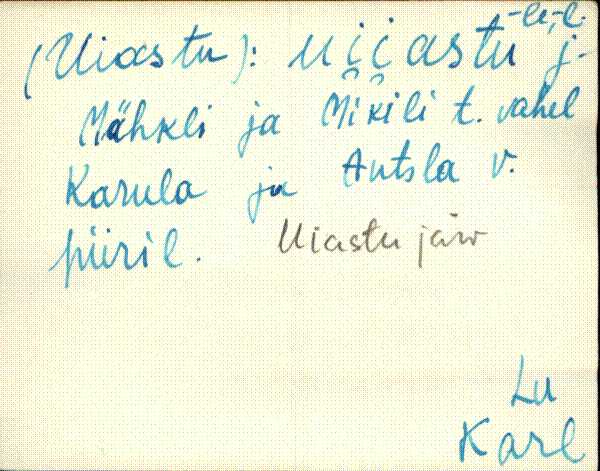 -le, -l.
(Uiastu): uiiastu j.
Mähkli ja Mikili t. vahel
Karula ja Antsla v.
piiril. Uiastu järv
Lu
Karl